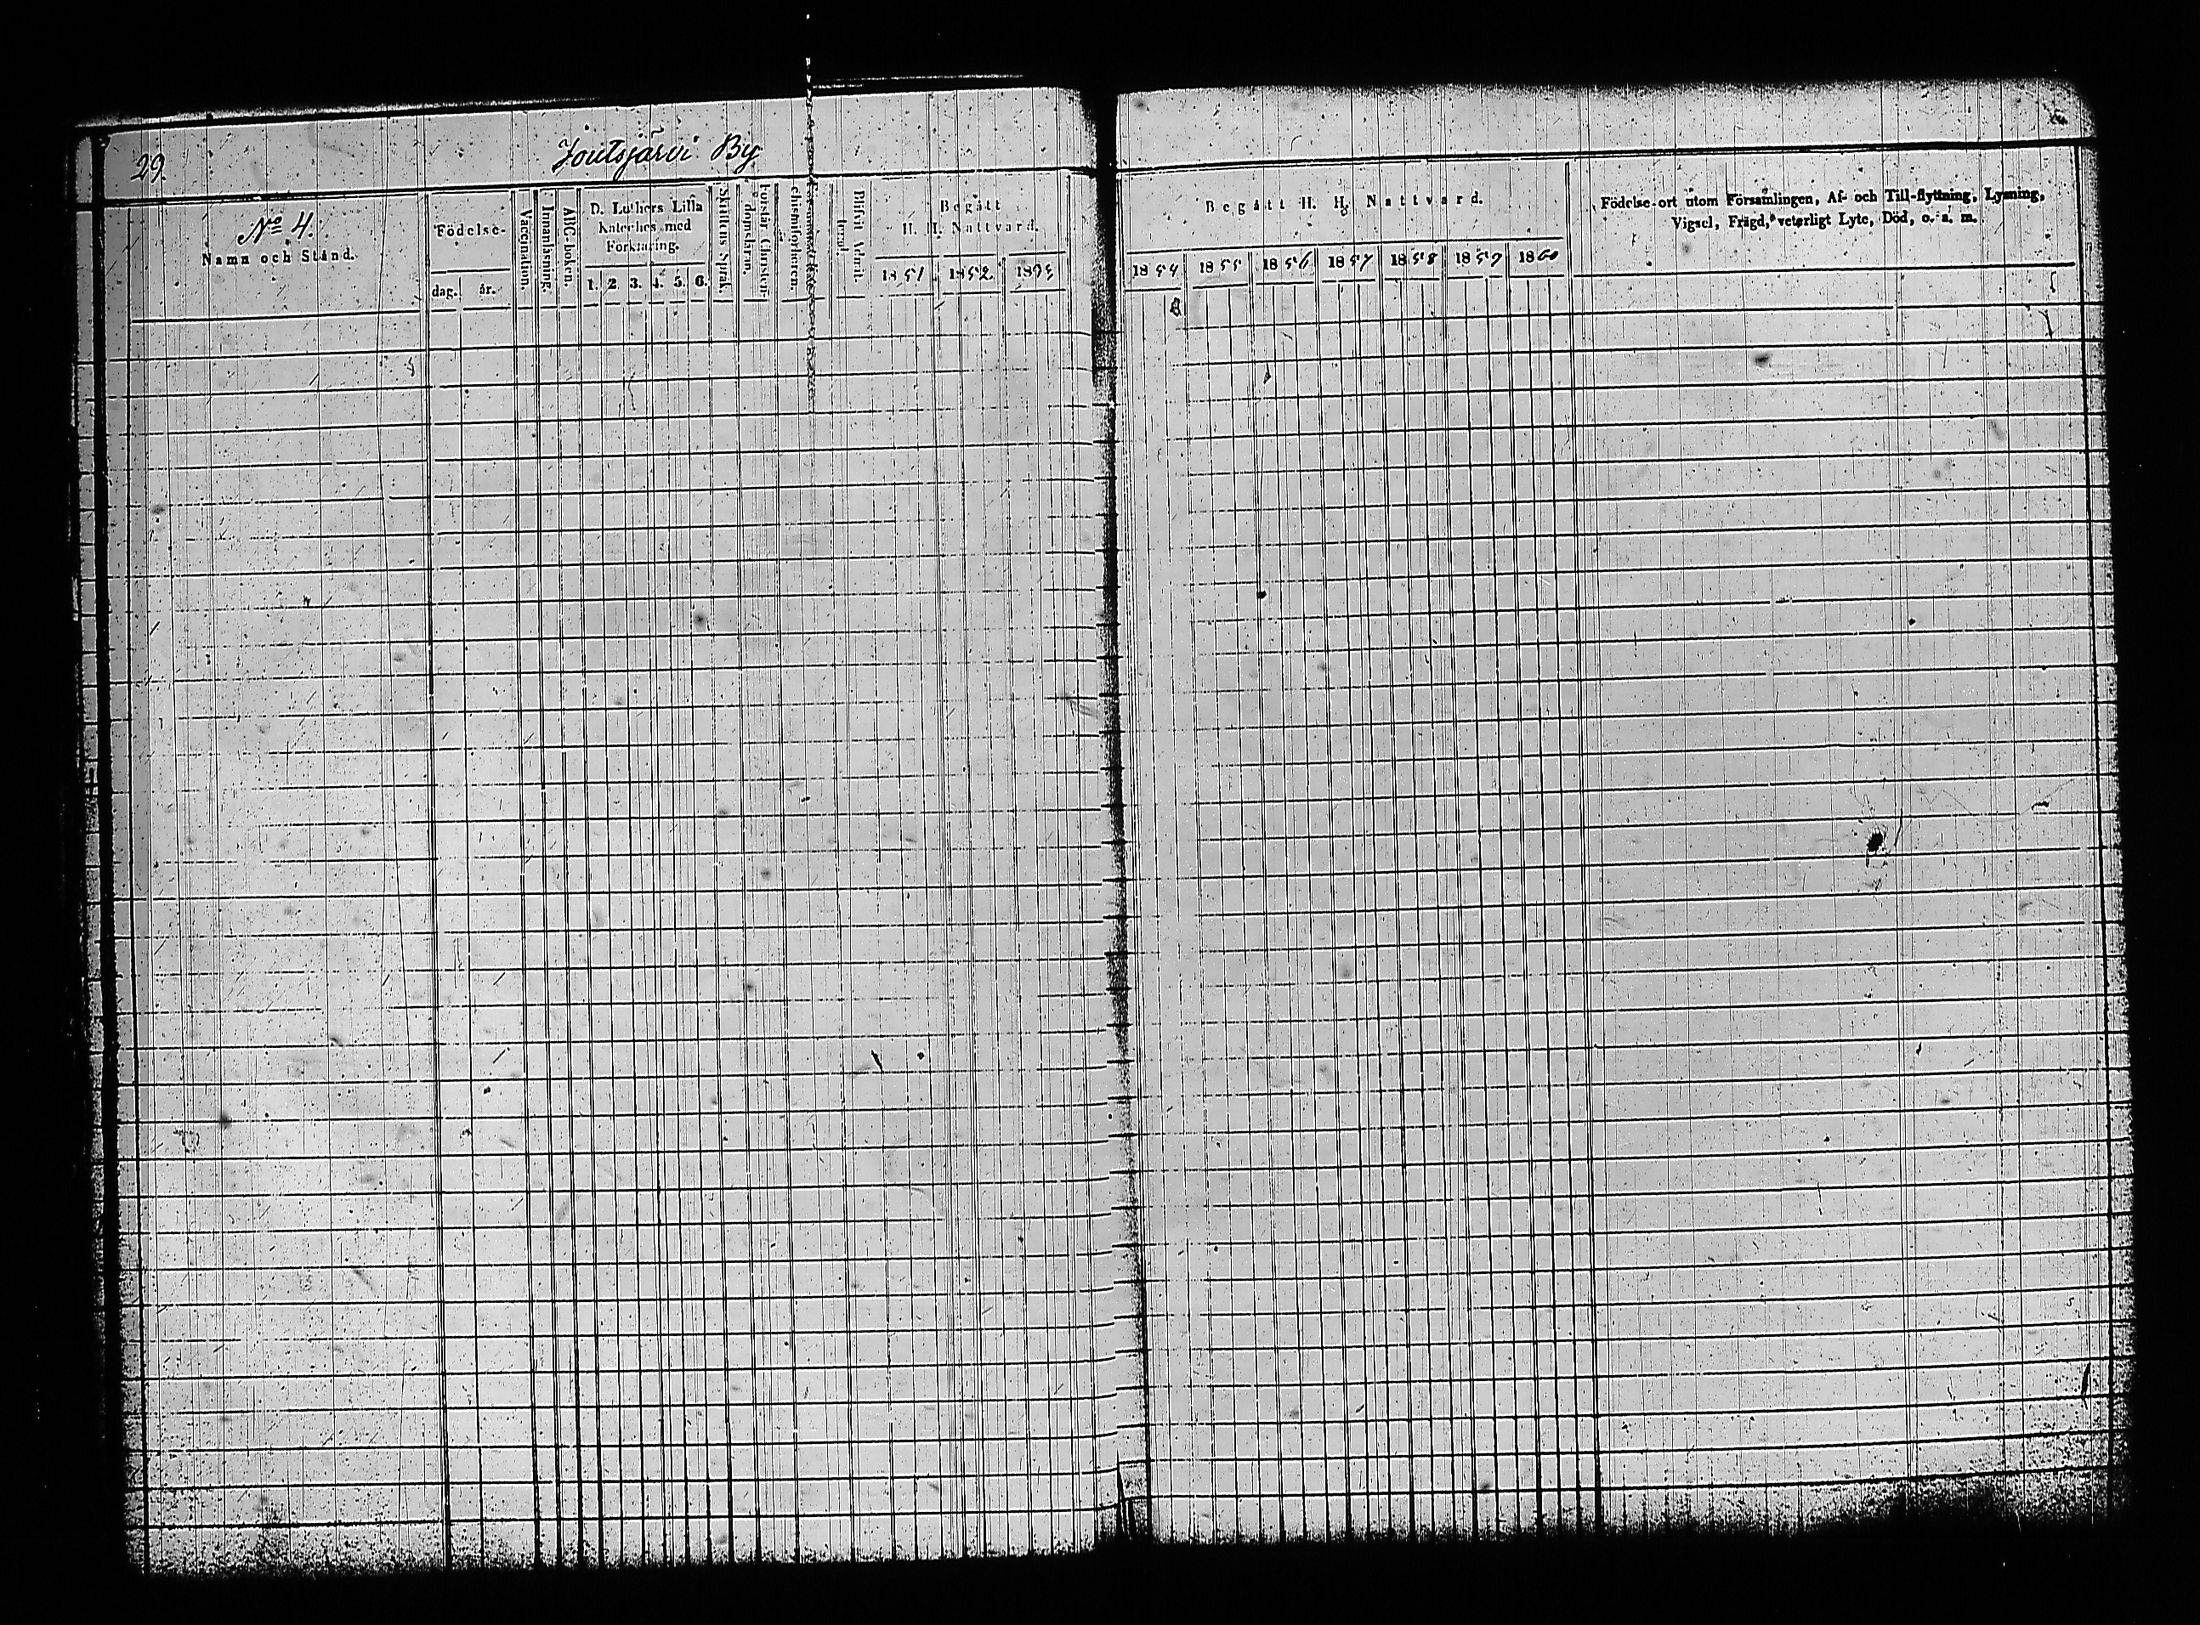 29.
Joutsjärvi By
No 4.
Namn och Stånd.
Födelse-
dag. år.
Vaccination.
Innanläsning.
ABC-boken.
D. Luthers Lilla
Kateches med
Förklaring.
1. 2. 3. 4. 5. 6.
Skriftens Språk.
Förstår Christen-
domsläran.
Blifvit Admit-
terad.
Begått
H. H. Nattvard.
1851 1852 1853
Begått H. H. Nattvard.
1854 1855 1856 1857 1858 1859 1860
Födelse-ort utom Församlingen, Af- och Till-flyttning, Lysning,
Vigsel, Frägd, veterligt Lyte, Död, o. a. m.